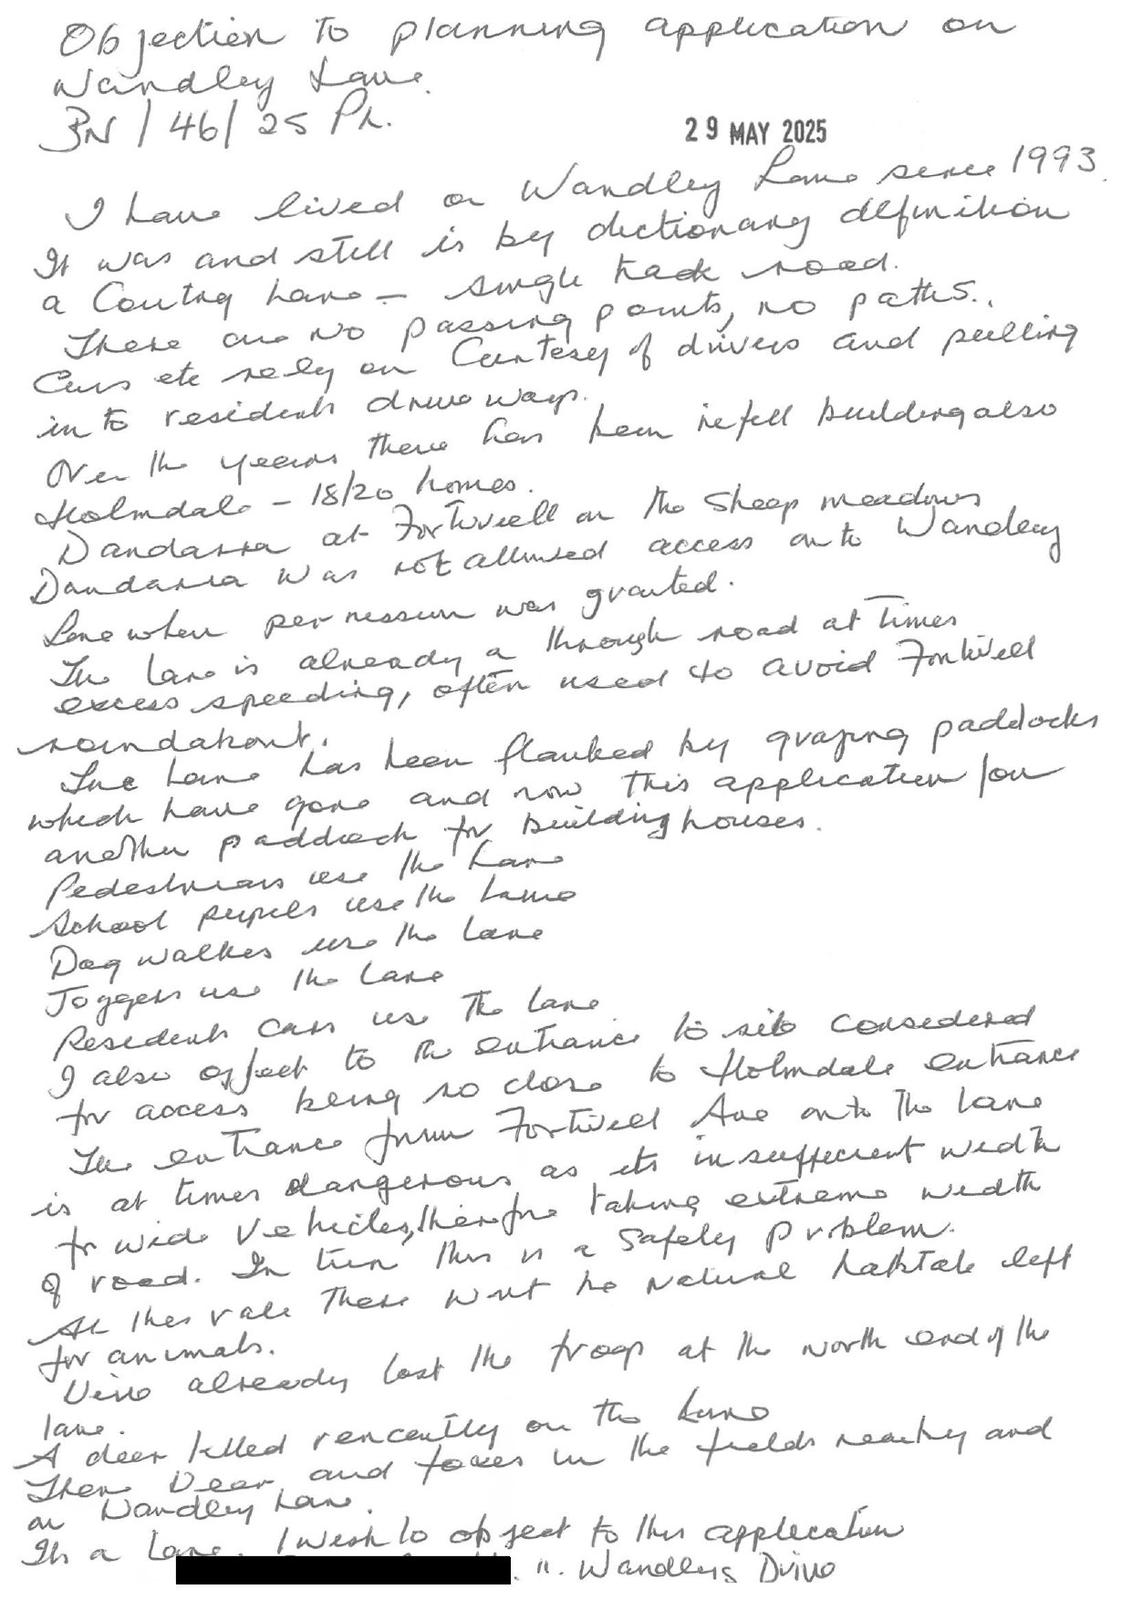 Objection to planning application on
Wandley Lane.
BN / 46 / 25 PL.
29 MAY 2025
I have lived on Wandley Lane since 1993.
It was and still is by dictionary definition
a Coutry Lane – single track road.
There are no passing points, no paths.
Cars etc rely on Courtesy of drivers and pulling
into residents driveways.
Over the years there has been infill building also
Holmdale – 18/20 homes.
Dandarra at Fontwell on the Sheep meadows
Dandarra was not allowed access onto Wandley
Lane when permission was granted.
The lane is already a through road at times
excess speeding, often used to avoid Fontwell
roundabout.
The Lane has been flanked by grazing paddocks
which have gone and now this application for
another paddock for building houses.
Pedestrians use the Lane
School pupils use the Lane
Dog walkes use the Lane
Joggers use the Lane
Residents cars use the lane
I also offect to the entrance to site considered
for access being so close to Holmdale entrance
The entrance from Fontwell Ave onto the lane
is at times dangerous as its insufficient width
for wide vehicles, therefore taking extreme width
of road. In turn this is a Safety problem.
At this rate there wont be natural habitate left
for animals.
already lost the at the north end of the
lane.
A deer killed rencently on the Lane
There Dear and foxes in the fields nearby and
on Wandley Lane.
Its a Lane. I wish to object to this application
". Wandleys Drive